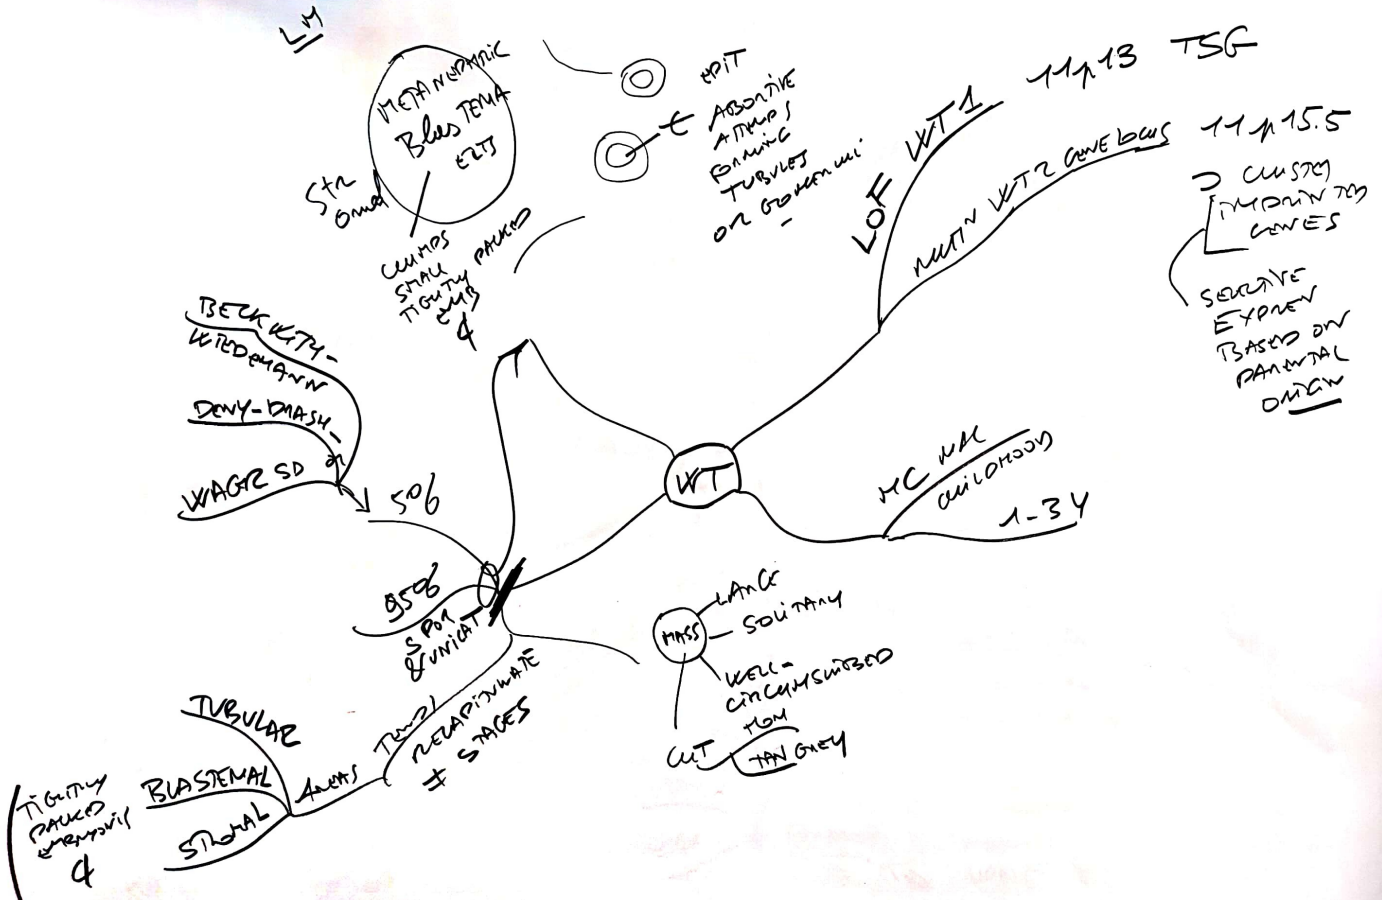 LM
METANEPHRIC
BlasTEMA
Str
CLUMPS
SMALL
TIGHTLY PACKED
EMB
¢
EPIT
¢ ABORTIVE
FORMING
TUBULES
OR
LOF WT1 11p13 TSG
MUTN WT2 GENE LOCUS 11p15.5
CLUSTER
IMPRINTED
GENES
SELECTIVE
BASED ON
PARENTAL
ORIGIN
BECKWITH-
WIEDEMANN
DENY-DRASH-
WAGR SD
5%
95%
SPOR
& UNILAT
WT
MC
CHILDHOOD
1-3Y
MASS
LARGE
SOLITARY
WELL-
CIRCUMSCRIBED
HOM
CUT TAN GREY
RECAPITULATE
≠ STAGES
AREAS
TUBULAR
BLASTEMAL
STROMAL
TIGHTLY
PACKED
¢